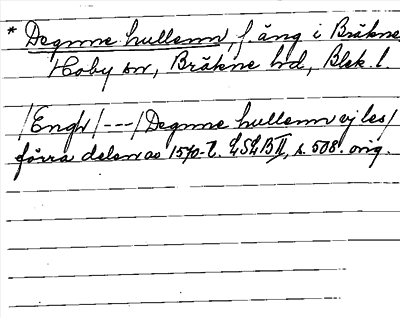 * Degnne hullenn, f. äng i Bräkne
Hoby sn, Bräkne hd, Blek. l.
/Engh/ --- / Degnne hullenn ej les /
förra delen av 1570-t. LSLB II, s. 508. orig.